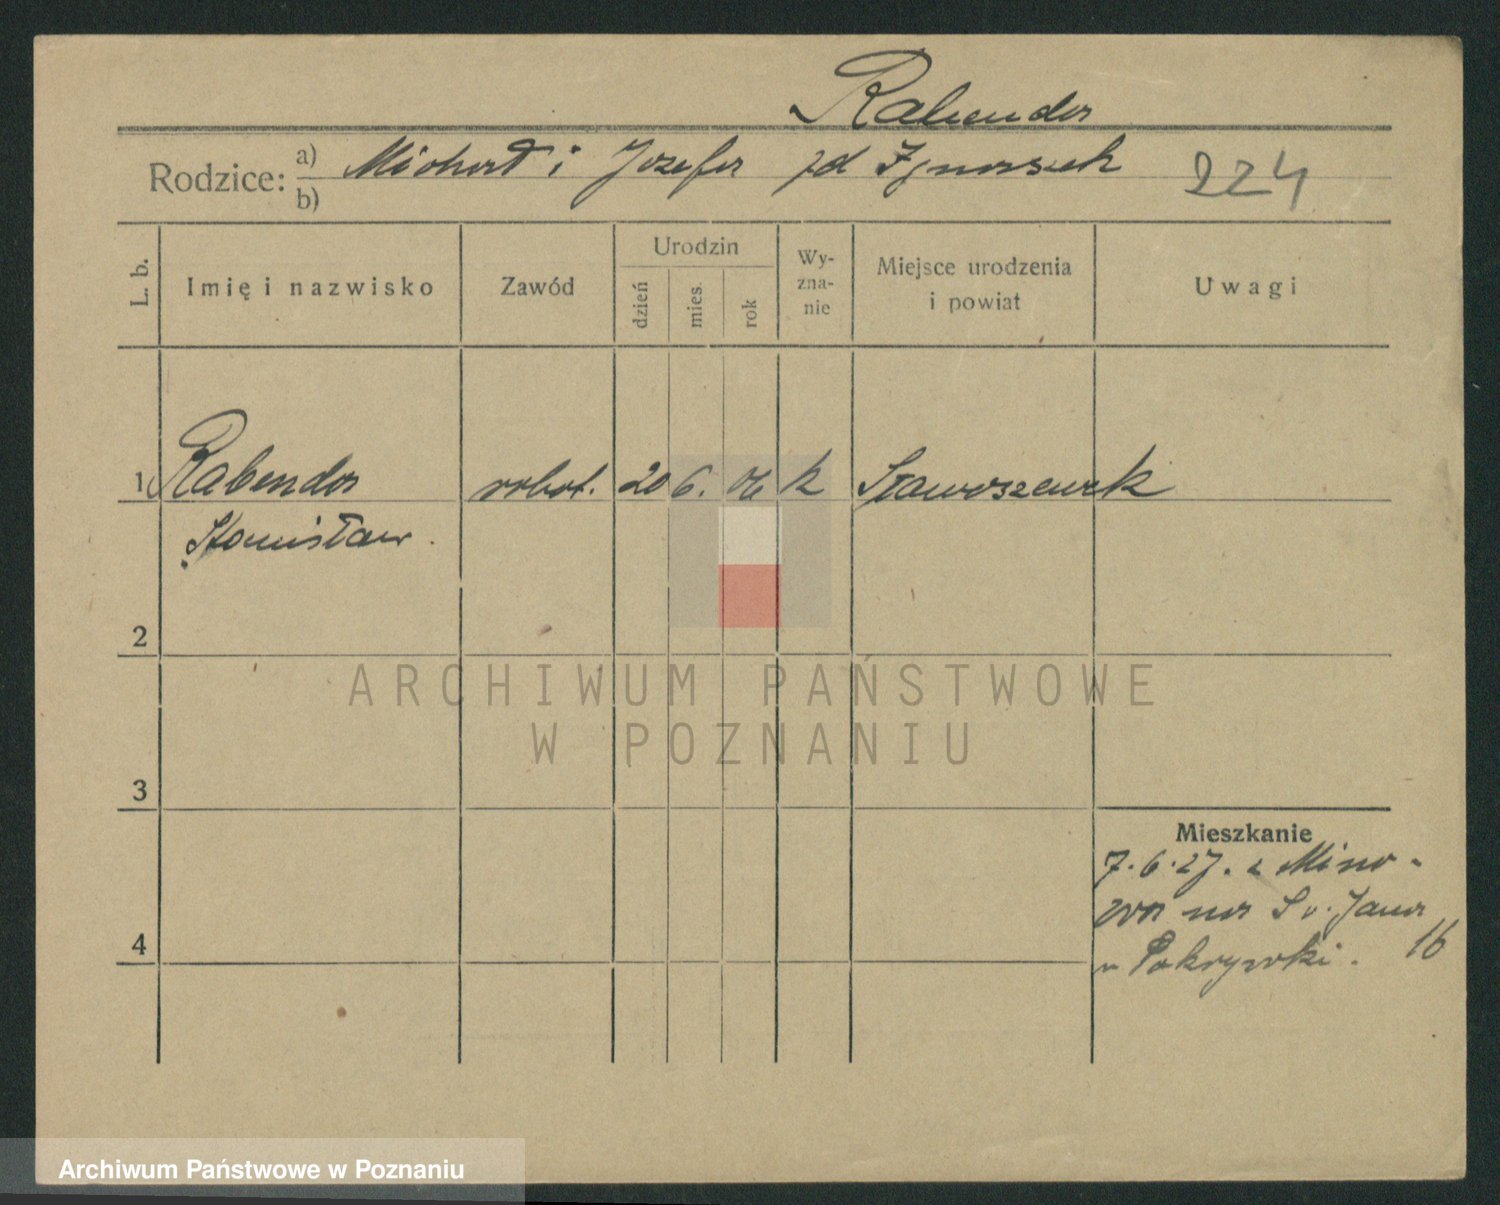 Rabenda
Rodzice: a) Michał i Józefa zd Ignaszak
b)
224
L. b.
Imię i nazwisko
Zawód
Urodzin
dzień
mies.
rok
Wy-
zna-
nie
Miejsce urodzenia
i powiat
Uwagi
1 Rabenda robot. 20 6. 06 k Staroszewek
Stanisław.
2
3
4
Mieszkanie
7.6.27. z
na Św. Jana
16
ARCHIWUM PAŃSTWOWE
W POZNANIU
Archiwum Państwowe w Poznaniu